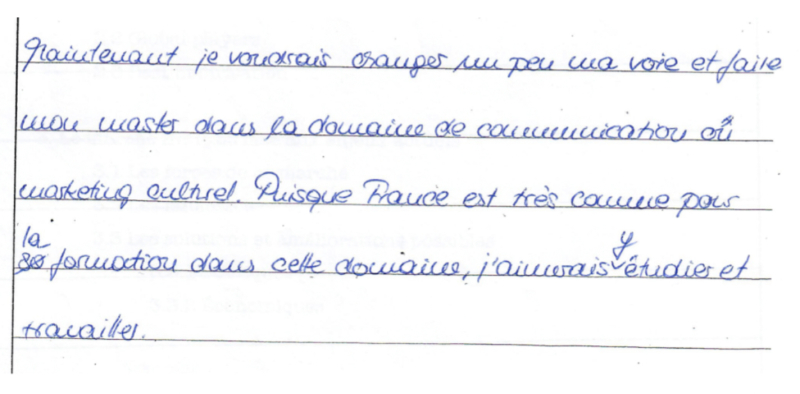 Maintenant je voudrais changer un peu ma voie et faire
mon master dans la domaine de communication oû
marketing culturel. Puisque France est très connue pour
la formation dans cette domaine, j'aimerais y étudier et
travailler.